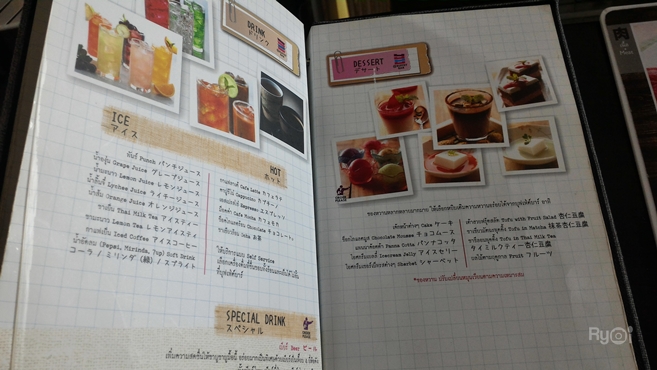 DRINK
ドリンク
ICE
アイス
พันช์ Punch パンチジュース
น้ำองุ่น Grape Juice グレープジュース
น้ำมะนาว Lemon Juice レモンジュース
น้ำลิ้นจี่ Lychee Juice ライチージュース
น้ำส้ม Orange Juice オレンジジュース
ชาเย็น Thai Milk Tea アイスティー
ชามะนาว Lemon Tea レモンアイスティー
กาแฟเย็น Iced Coffee アイスコーヒー
น้ำอัดลม (Pepsi, Mirinda, 7up) Soft Drink
コーラ / ミリンダ (緑) / スプライト
HOT
ホット
Cafe Latte カフェラテ
Cappucino カプチーノ
Espresso エスプレッソ
Cafe Mocha カフェモカ
Chocolate チョコレート
Ocha お茶
ให้บริการแบบ Self Service
SPECIAL DRINK
スペシャル
เบียร์ Beer ビール
DESSERT
デザート
เค้กหน้าต่างๆ Cake ケーキ
ช็อกโกแลตมูส Chocolate Mousse チョコムース
แพนนาค็อตต้า Panna Cotta パンナコッタ
ไอศกรีมเจลลี่ Icecream Jelly アイスゼリー
Sherbet シャーベット
Tofu with Fruit Salad 杏仁豆腐
Tofu in Matcha 抹茶杏仁豆腐
Tofu in Thai Milk Tea
タイミルクティー杏仁豆腐
ผลไม้ตามฤดูกาล Fruit フルーツ
*ของหวาน ปรับเปลี่ยนหมุนเวียนตามความเหมาะสม
肉
Ryoii